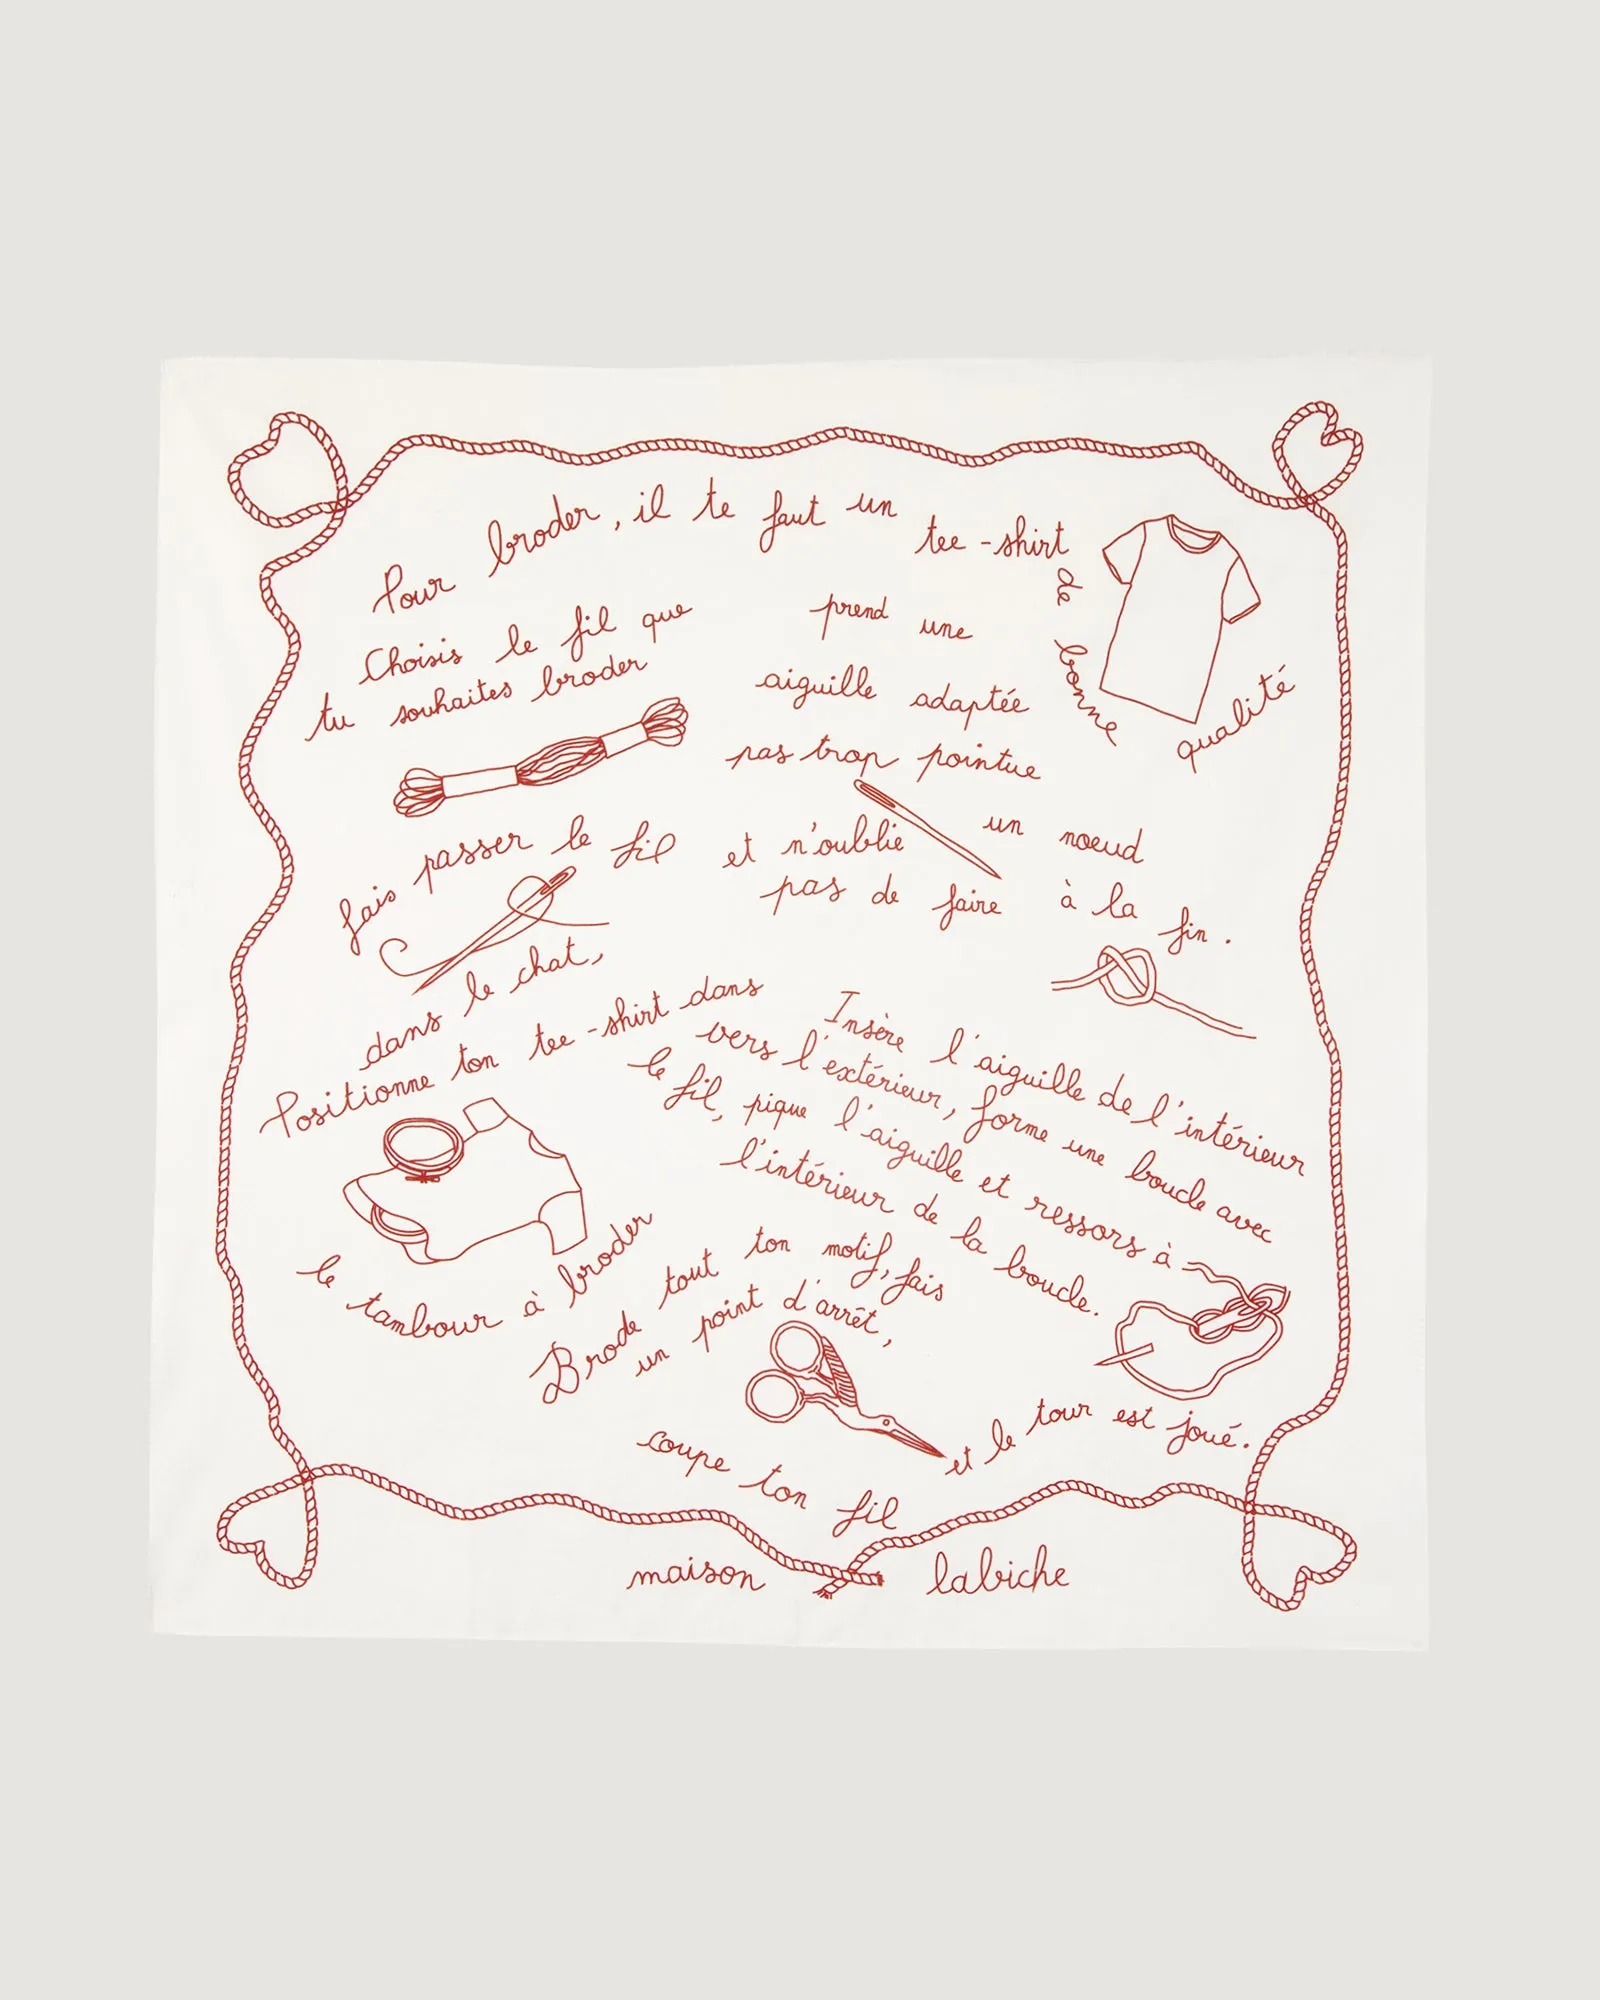 Pour broder, il te faut un tee-shirt
de bonne qualité
Choisis le fil que
tu souhaites broder
prend une
aiguille adaptée
pas trop pointue
fais passer le fil
dans le chat,
et n'oublie
pas de faire
un noeud
à la fin.
Positionne ton tee-shirt dans
le tambour à broder
Insère l'aiguille de l'intérieur
vers l'extérieur, forme une boucle avec
le fil, pique l'aiguille et ressors à
l'intérieur de la boucle.
Brode tout ton motif, fais
un point d'arrêt,
coupe ton fil
et le tour est joué.
maison labiche